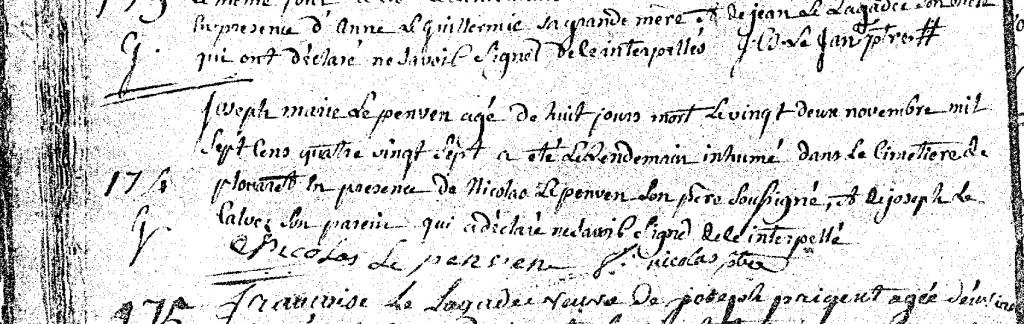 en presence d'Anne Le quillermic sa grande mere et de jean Le Lagadec son oncle
qui ont déclaré ne savoir signer de ce interpellés J. Le Jan ptre
Joseph marie Le penven agé de huit jours mort Le vingt deux novembre mil
Sept Cens quatre vingt sept a eté Le Lendemain inhumé dans Le Cimetiere de
174 plouaret En presence de Nicolas Le penven son père soussigné, et de joseph Le
Calvez son parein qui a déclaré ne savoir signer de ce interpellé
Nicolas Le penven nicolas ptre
175 Françoise Le Lagadec veuve de joseph prigent agée